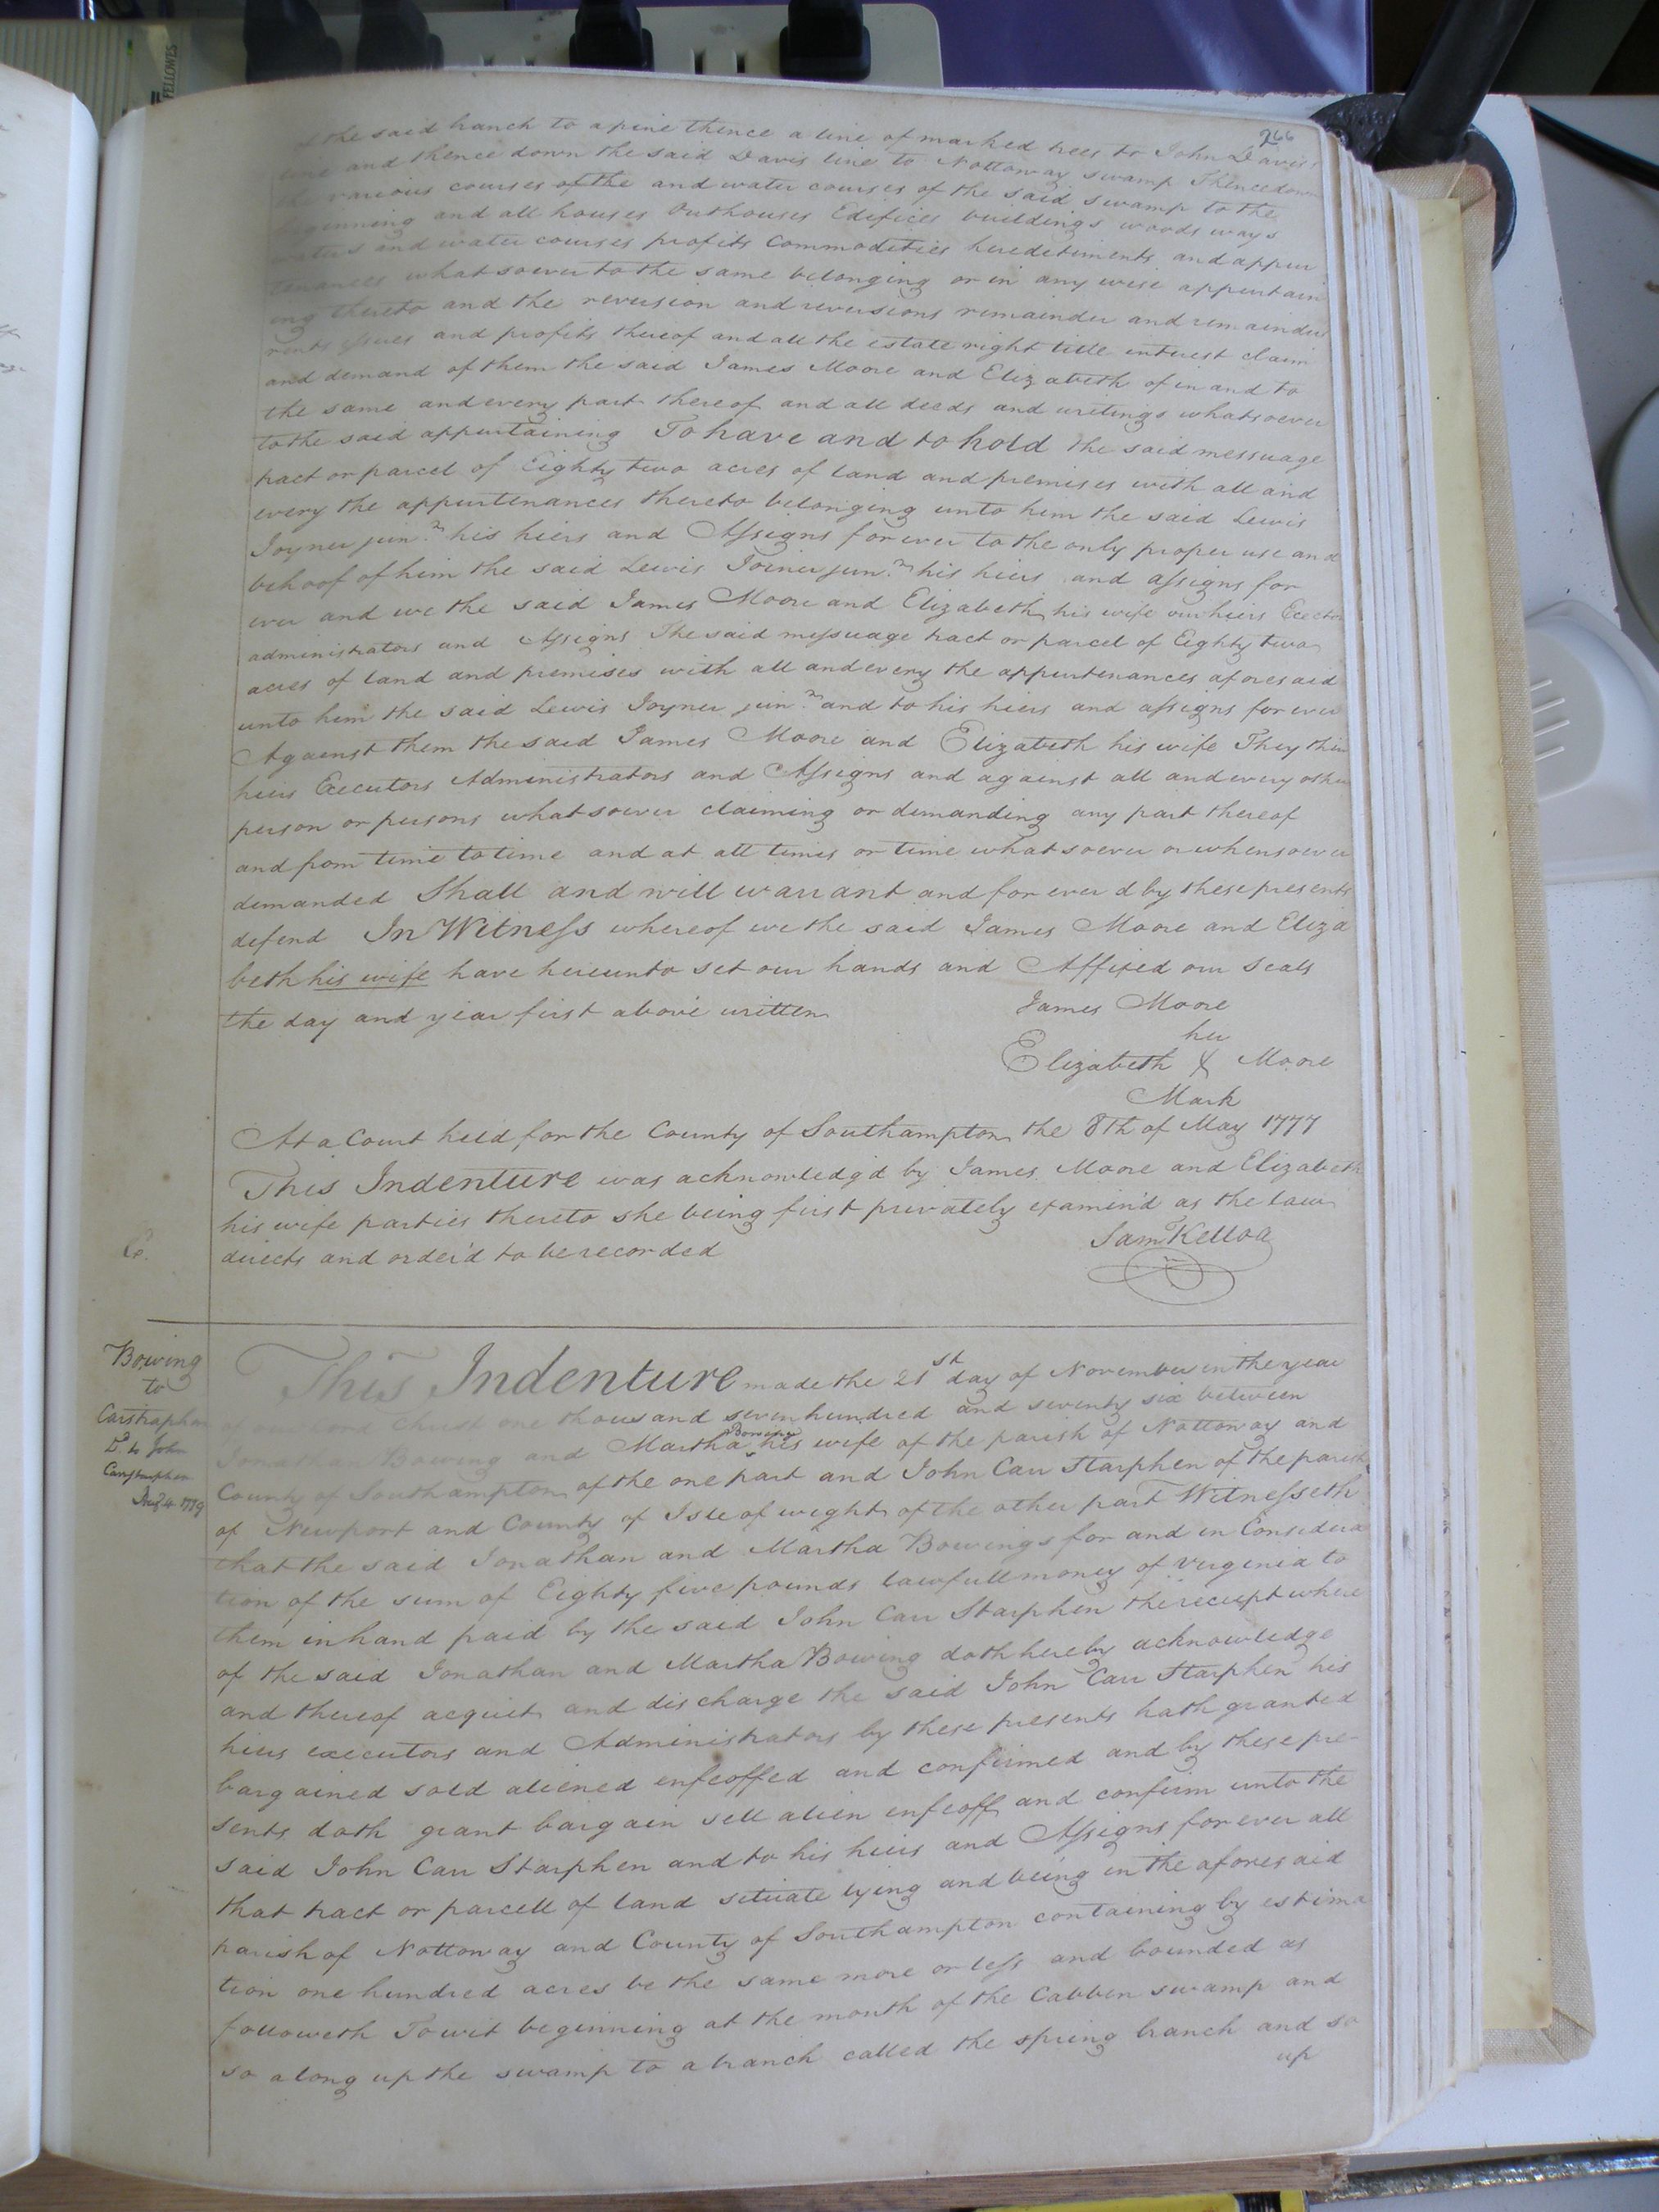 FELLOWES
266
the said branch to a pine thence a line of marked trees to John Davis's
line and thence down the said Davis line to Nottoway swamp Thence down
various courses of the and water courses of the said swamp to the
beginning and all houses Outhouses Edifices buildings woods ways
waters and water courses profits Commodities herediments and appur
tenances whatsoever to the same belonging or in any wise appertain
ing thereto and the reversion and reversions remainder and remainders
rents issues and profits thereof and all the estate right title interest claim
and demand of them the said James Moore and Elizabeth of in and to
the same and every part thereof and all deeds and writings whatsoever
to the said appurtaining To have and to hold the said messuage
tract or parcel of Eighty two acres of land and premises with all and
every the appurtenances thereto belonging unto him the said Lewis
Joyner jun.r his hiers and Assigns for ever to the only proper use and
behoof of him the said Lewis Joiner jun.r his hiers and assigns for
ever and we the said James Moore and Elizabeth his wife our hiers Exectors
administrators and Assigns The said messuage tract or parcel of Eighty two
acres of land and premises with all and every the appurtenances aforesaid
unto him the said Lewis Joyner jun.r and to his hiers and assigns for ever
Against them the said James Moore and Elizabeth his wife They their
hiers Executors Administrators and Assigns and against all and every other
person or persons whatsoever claiming or demanding any part thereof
and from time to time and at all times or time whatsoever or whensoever
demanded Shall and will warrant and for ever d by these presents
defend In Witness whereof we the said James Moore and Eliza
beth his wife have hereunto set our hands and Affixed our Seals
the day and year first above written
James Moore
her
Elizabeth X Moore
Mark
At a Court held for the County of Southampton the 8th of May 1777
This Indenture was acknowledg'd by James Moore and Elizabeth
his wife parties thereto she being first privately examin'd as the law
directs and order'd to be recorded
Sam Kello
Bowing
to
Carstraphen
D.d to John
Carstraphen
Aug 4 1779
This Indenture made the 21st day of November in the year
of our Lord Christ one thousand seven hundred and seventy six between
Jonathan Bowing and Martha Bowing his wife of the parish of Nottoway and
County of Southampton of the one part and John Carr Starphen of the parish
of Newport and County of Isle of wight of the other part Witnesseth
that the said Jonathan and Martha Bowings for and in Considera
tion of the sum of Eighty five pounds lawfull money of Virginia to
them in hand paid by the said John Carr Starphen the receipt where
of the said Jonathan and Martha Bowing doth hereby acknowledge
and thereof acquit and discharge the said John Carr Starphen his
hiers executors and Administrators by these presents hath granted
bargained sold aliened enfeoffed and confirmed and by these pre
sents doth grant bargain sell alien enfeoff and confirm unto the
said John Carr Starphen and to his hiers and Assigns for ever all
that tract or parcell of land situate lying and being in the aforesaid
parish of Nottoway and County of Southampton containing by estima
tion one hundred acres be the same more or less and bounded as
followeth To wit beginning at the mouth of the Cabben swamp and
so along up the swamp to a branch called the spring branch and so
up